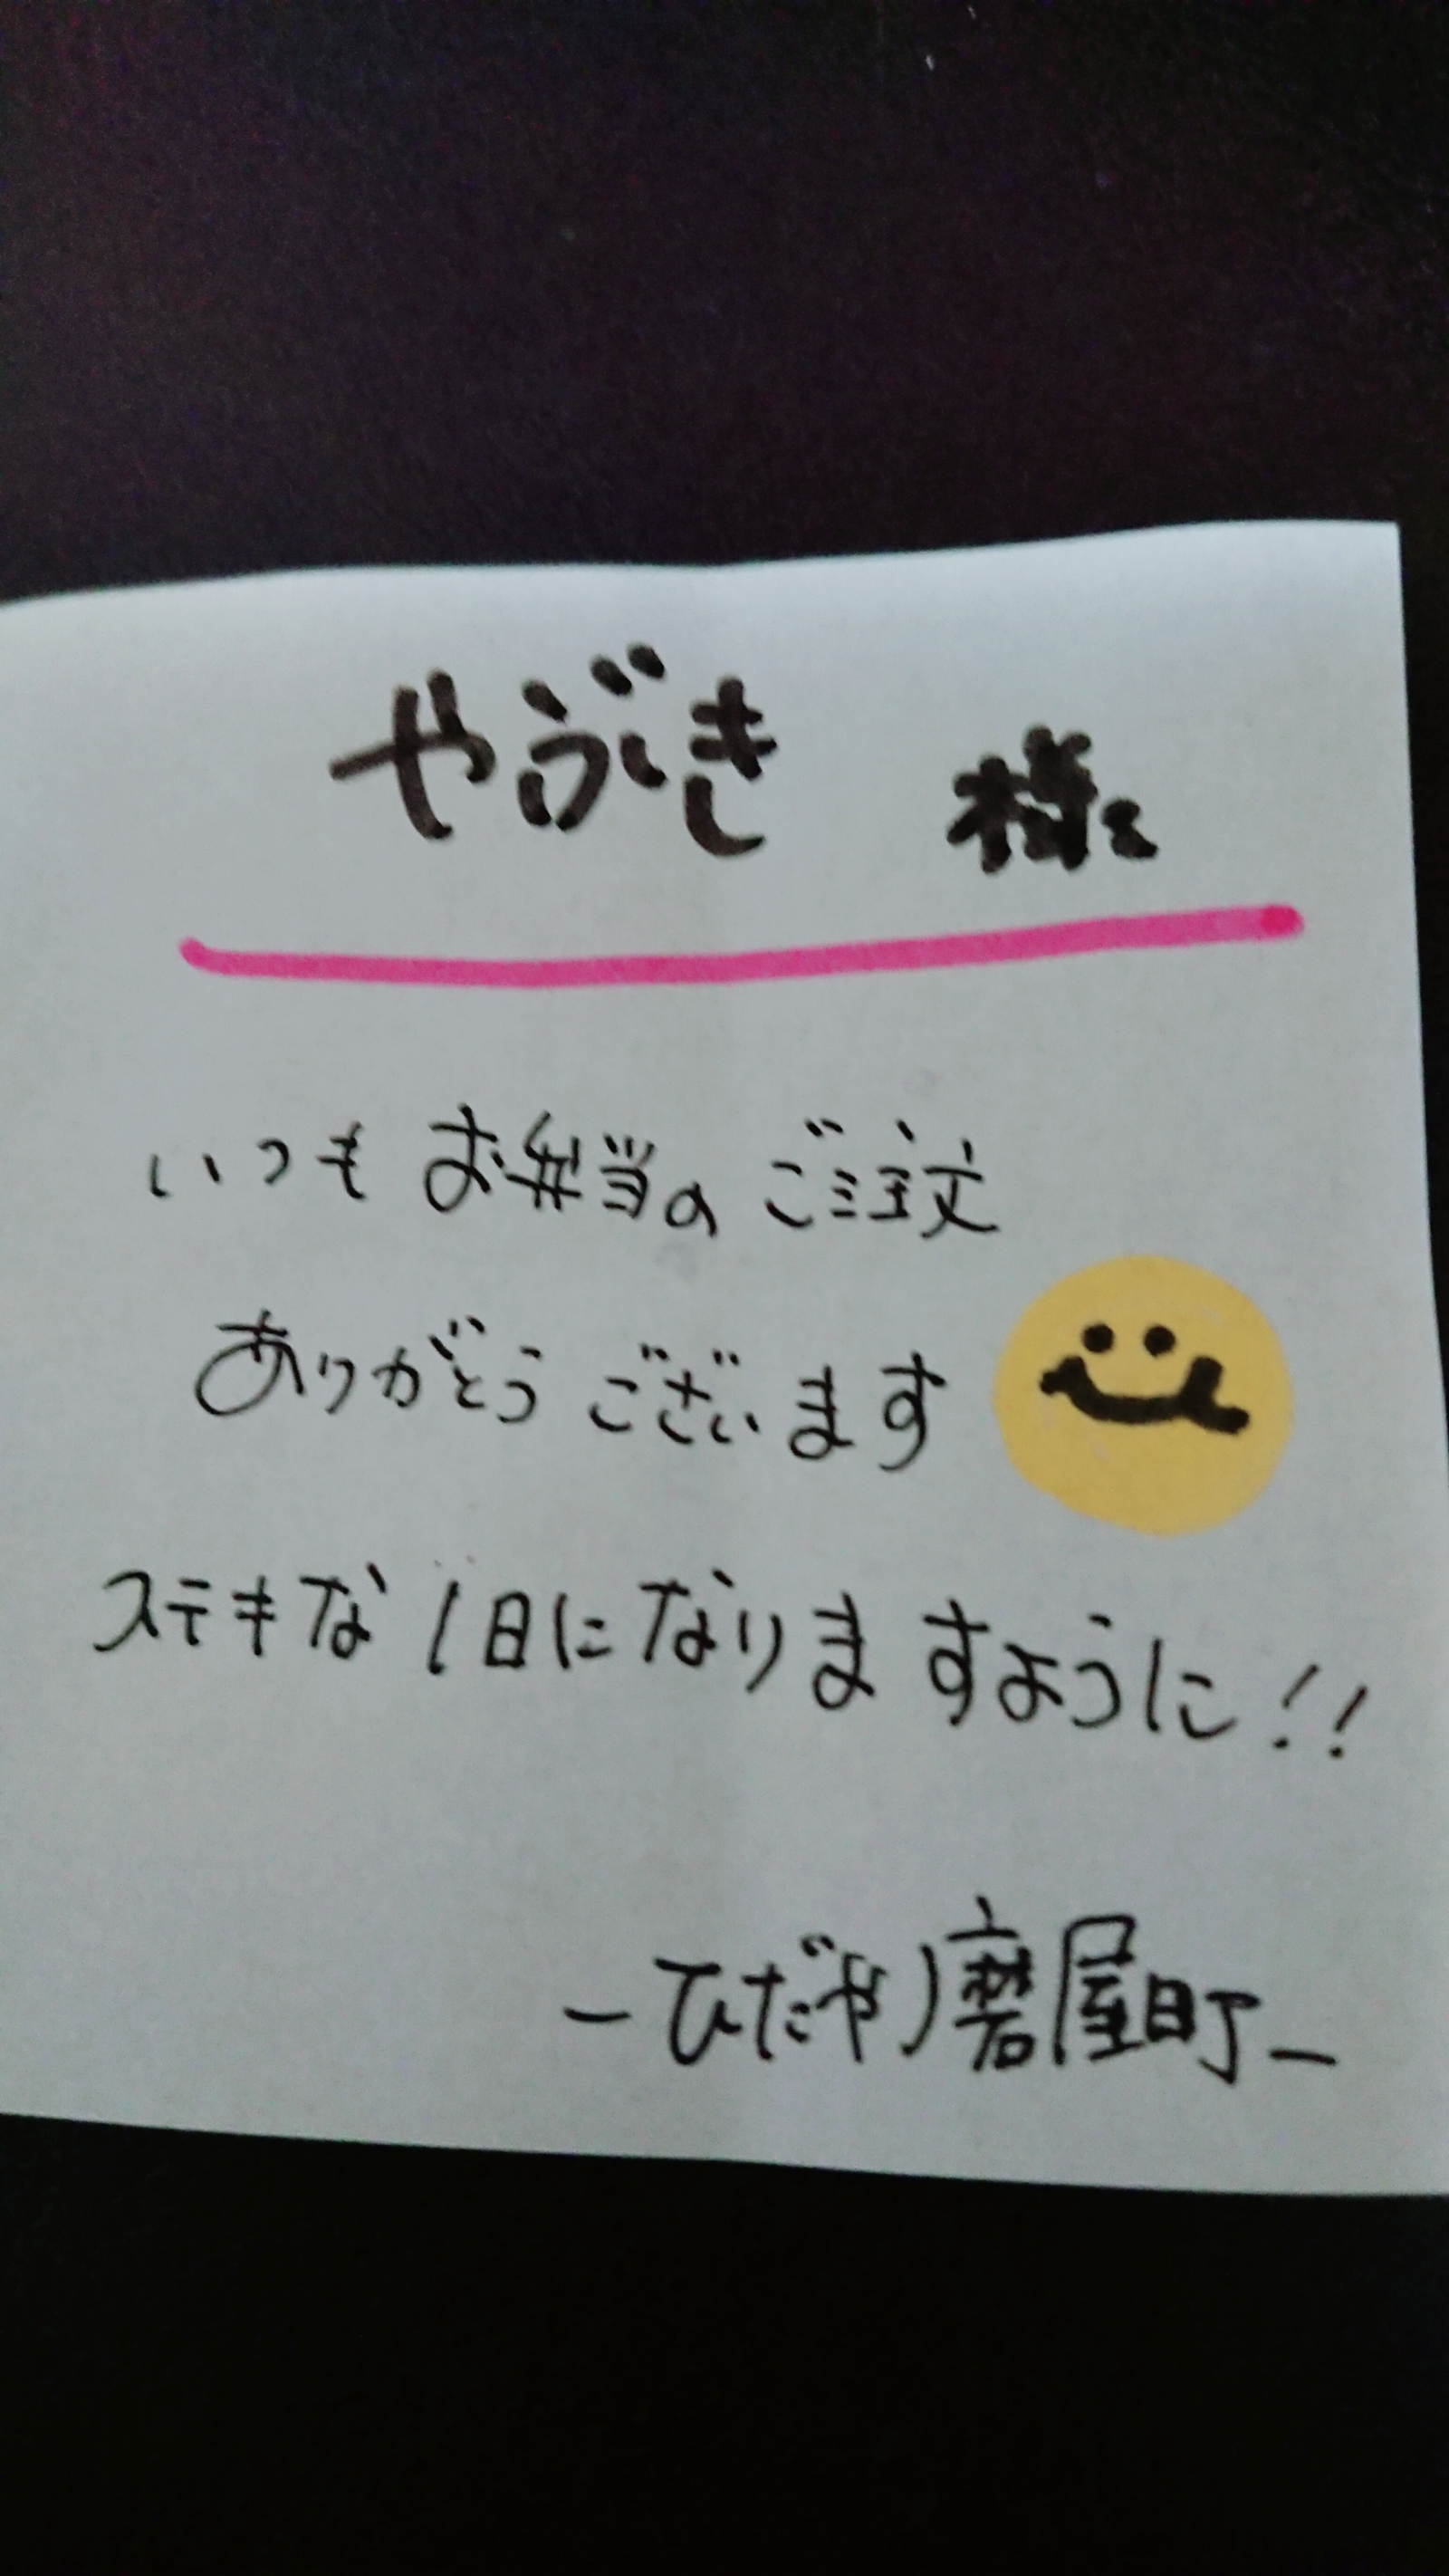 やぶき 様
いつも お弁当の ご注文
ありがとう ございます
ステキな 1日に なりますように!!
ーひだやり磨屋町ー